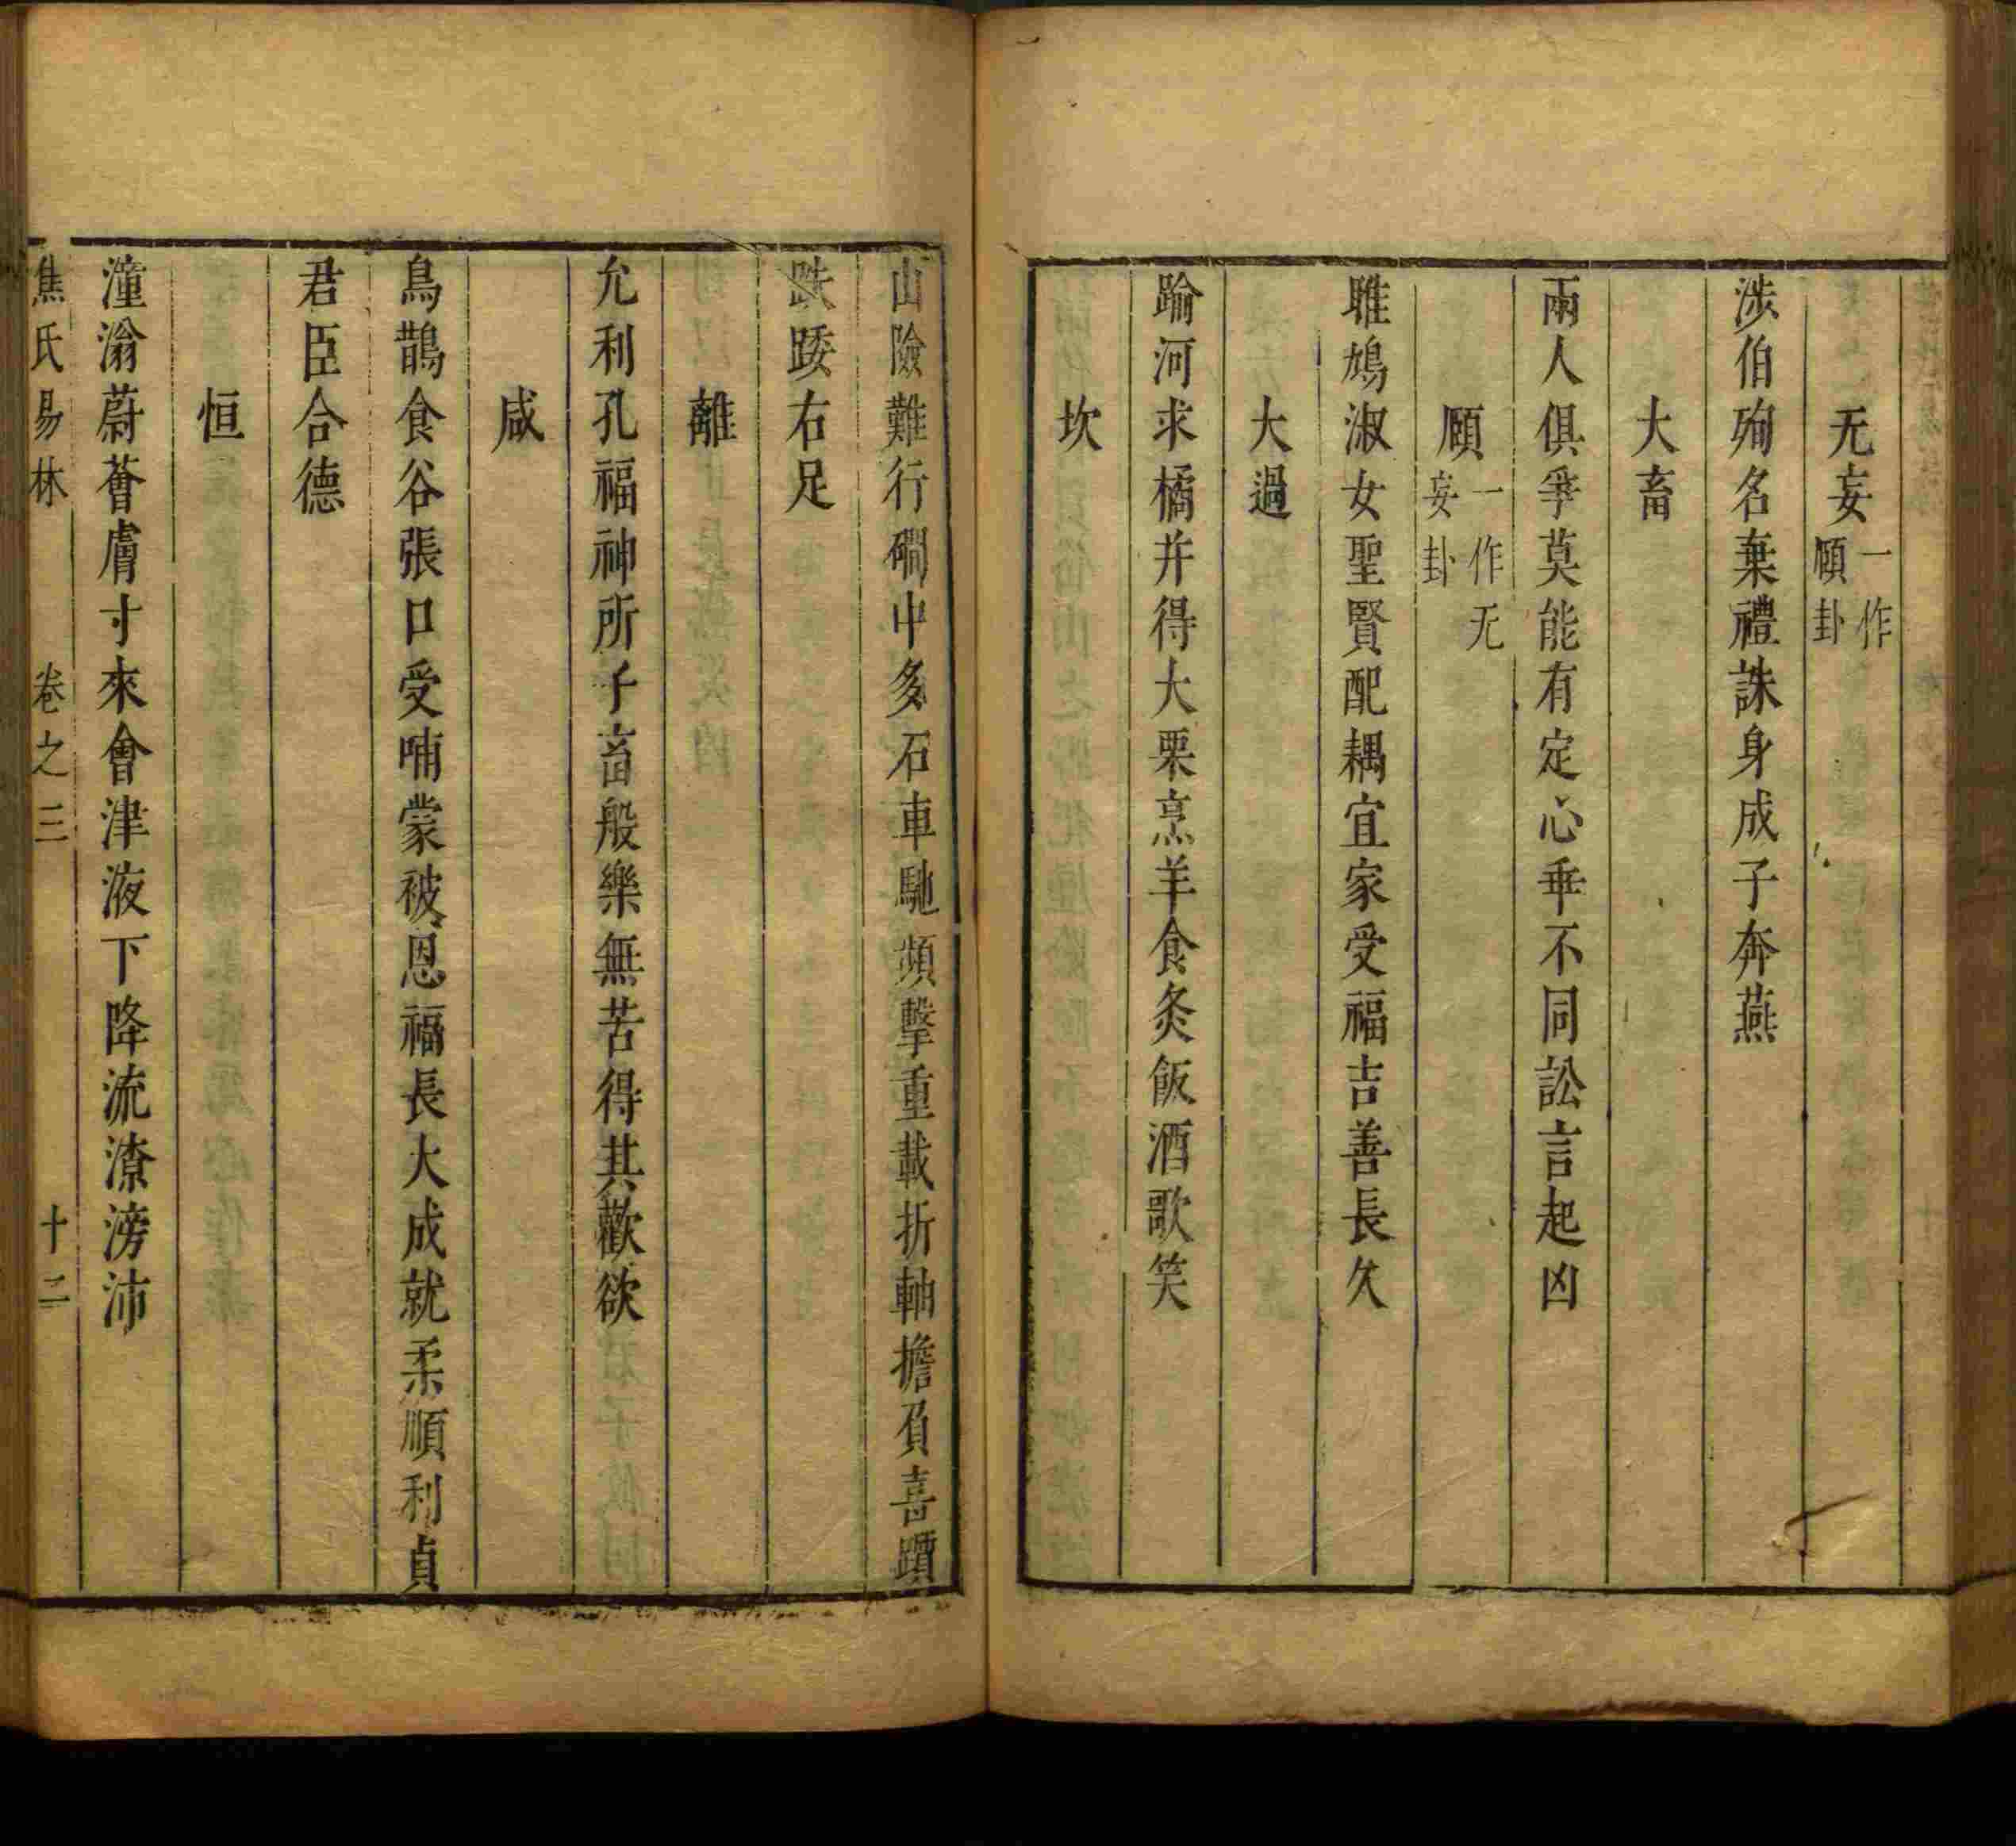 无妄一作頤卦
涉伯殉名棄禮誅身成子奔燕
大畜
兩人俱爭莫能有定心乖不同訟言起凶
頤一作无妄卦
雎鳩淑女聖賢配耦宜家受福吉善長久
大過
踰河求橘并得大栗烹羊食炙飯酒歌笑
坎
山險難行磵中多石車馳頻擊重載折軸擔負喜躓
跌踒右足
離
允利孔福神所子畜般樂無苦得其歡欲
咸
鳥鵲食谷張口受哺蒙被恩福長大成就柔順利貞
君臣合德
恒
潼滃蔚薈膚寸來會津液下降流潦滂沛
焦氏易林 卷之三 十二